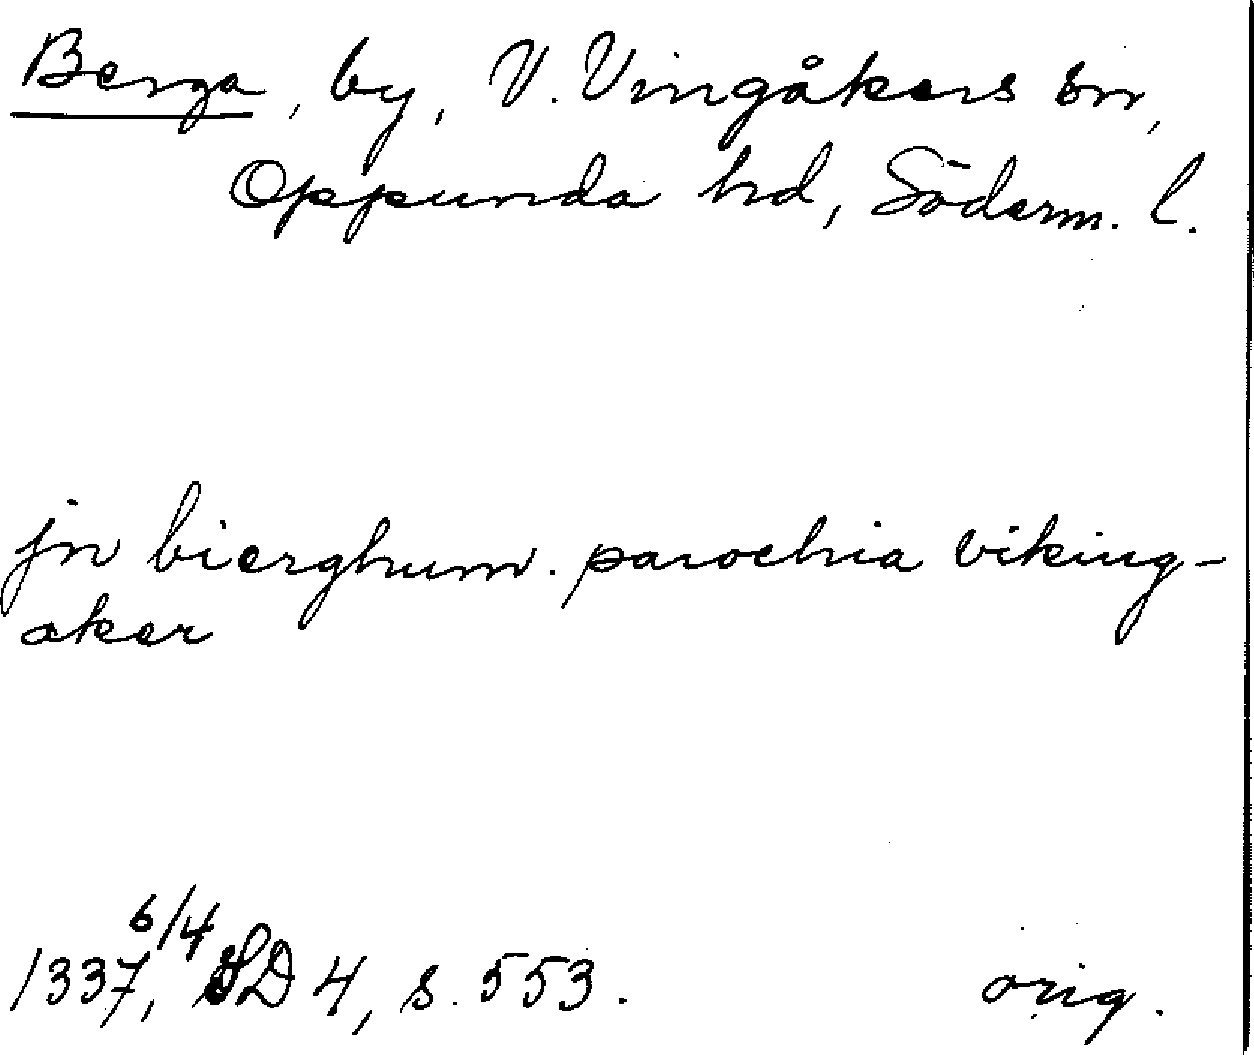 Berga, by, V. Vingåkers sn,
Oppunda hd, Söderm. l.
jn bierghum. parochia viking-
aker
1337, 6/4 SD 4, s. 553. orig.